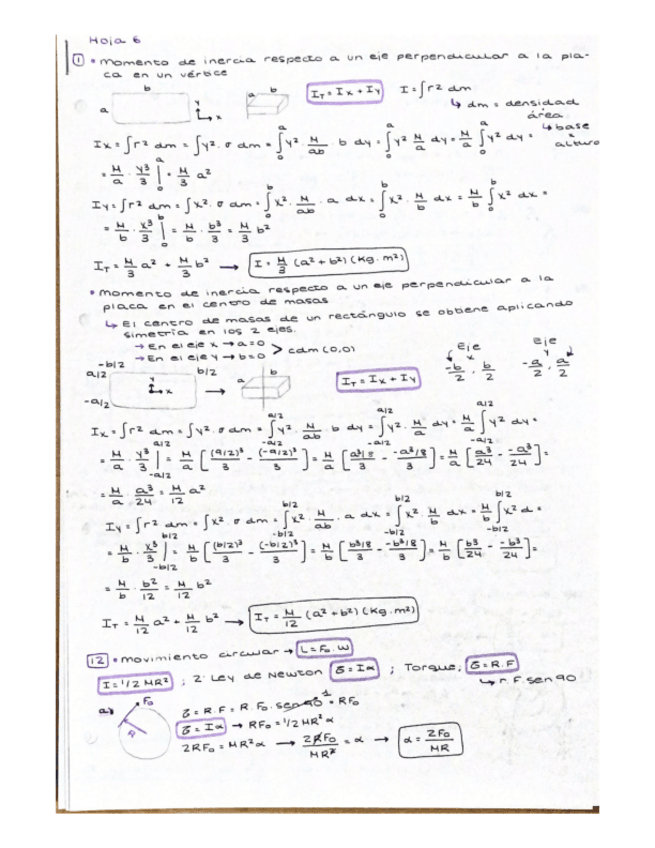 Hoja 6
1 • Momento de inercia respecto a un eje perpendicular a la pla-
ca en un vértice
b
a
y
x
b
a
I_T = I_x + I_y
I = ∫r² dm
↳ dm = densidad
área
↳ base
altura
I_x = ∫r² dm = ∫y² · σ dm = ∫₀^a y² · M/ab · b dy = ∫₀^a y² M/a dy = M/a ∫₀^a y² dy =
= M/a · y³/3 |₀^a = M/3 a²
I_y = ∫r² dm = ∫x² · σ dm = ∫₀^b x² · M/ab · a dx = ∫₀^b x² · M/b dx = M/b ∫₀^b x² dx =
= M/b · x³/3 |₀^b = M/b · b³/3 = M/3 b²
I_T = M/3 a² + M/3 b² → I = M/3 (a² + b²) (Kg · m²)
• Momento de inercia respecto a un eje perpendicular a la
placa en el centro de masas
↳ El centro de masas de un rectángulo se obtiene aplicando
simetría en los 2 ejes.
→ En el eje x → a = 0
→ En el eje y → b = 0 > cdm (0,0)
-b/2
b/2
a/2
-a/2
y
x
→
a
b
I_T = I_x + I_y
Eje x
-b/2 , b/2
Eje y
-a/2 , a/2
I_x = ∫r² dm = ∫y² · σ dm = ∫_{-a/2}^{a/2} y² · M/ab · b dy = ∫_{-a/2}^{a/2} y² · M/a dy = M/a ∫_{-a/2}^{a/2} y² dy =
= M/a · y³/3 |_{-a/2}^{a/2} = M/a [(a/2)³/3 - (-a/2)³/3] = M/a [a³/8/3 - -a³/8/3] = M/a [a³/24 - -a³/24] =
= M/a · a³/24 = M/12 a²
I_y = ∫r² dm = ∫x² · σ dm = ∫_{-b/2}^{b/2} x² · M/ab · a dx = ∫_{-b/2}^{b/2} x² · M/b dx = M/b ∫_{-b/2}^{b/2} x² d =
= M/b · x³/3 |_{-b/2}^{b/2} = M/b [(b/2)³/3 - (-b/2)³/3] = M/b [b³/8/3 - -b³/8/3] = M/b [b³/24 - -b³/24] =
= M/b · b²/12 = M/12 b²
I_T = M/12 a² + M/12 b² → I_T = M/12 (a² + b²) (Kg · m²)
12 • Movimiento circular → L = F₀ · ω
I = 1/2 MR² ; 2ª Ley de Newton ζ = Iα ; Torque, ζ = R · F
↳ r · F · sen 90
a)
F₀
R
ζ = R · F = R · F₀ · sen 90 1 = RF₀
ζ = Iα → RF₀ = 1/2 MR² α
2RF₀ = MR² α → 2RF₀/MR² = α → α = 2F₀/MR